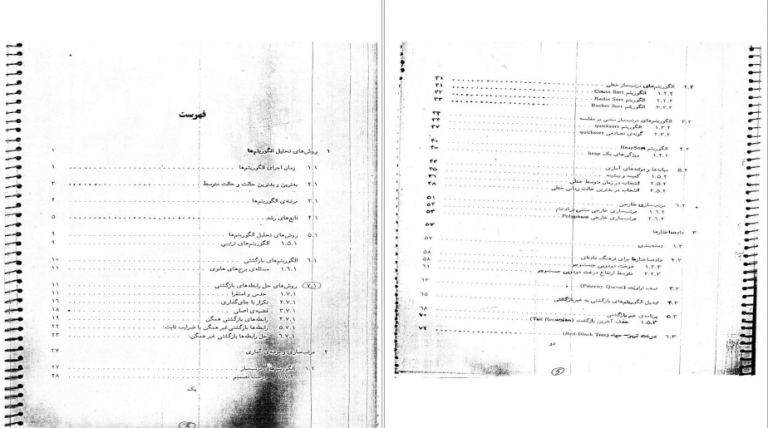 فهرست
۱ روش‌های تحلیل الگوریتم‌ها ۱
۱.۱ زمان اجرای الگوریتم‌ها ۱
۲.۱ بهترین و بدترین حالت و حالت متوسط ۳
۳.۱ مرتبه‌ی الگوریتم‌ها ۴
۴.۱ تابع‌های رشد ۵
۵.۱ روش‌های تحلیل الگوریتم‌ها ۹
۱.۵.۱ الگوریتم‌های ترتیبی ۹
۶.۱ الگوریتم‌های بازگشتی ۱۰
۱.۶.۱ مسئله‌ی برج‌های هانوی ۱۱
۷.۱ روش‌های حل رابطه‌های بازگشتی ۱۱
۱.۷.۱ حدس و استقرا ۱۱
۲.۷.۱ تکرار با جای‌گذاری ۱۶
۳.۷.۱ قضیه‌ی اصلی ۱۸
۴.۷.۱ رابطه‌های بازگشتی همگن ۱۹
۵.۷.۱ رابطه‌ها بازگشتی غیر همگن با ضرایب ثابت
۶.۷.۱ حل رابطه‌ها بازگشتی غیر همگن ۲۳
۲ مرتب‌سازی و مرتبه‌ی آماری ۲۷
۱.۲ ۲۷
تقسیم ۲۸
یک
۲.۲ الگوریتم‌های مرتب‌ساز خطی ۳۱
۱.۲.۲ الگوریتم Count Sort ۳۱
۲.۲.۲ الگوریتم Radix Sort ۳۲
۳.۲.۲ الگوریتم Bucket Sort ۳۳
۳.۲ الگوریتم‌های مرتب‌ساز مبتنی بر مقایسه ۳۴
۱.۳.۲ الگوریتم quicksort ۳۴
۲.۳.۲ گونه‌ی تصادفی quicksort ۳۷
۴.۲ الگوریتم HeapSort ۴۰
۱.۴.۲ ویژگی‌های یک heap ۴۰
۵.۲ میانه‌ها و مرتبه‌های آماری ۴۴
۱.۵.۲ کمینه و بیشینه ۴۵
۲.۵.۲ انتخاب در زمان متوسط خطی ۴۶
۳.۵.۲ انتخاب در بدترین حالت زمانی خطی ۴۸
۶.۲ مرتب‌سازی خارجی ۵۱
۱.۶.۲ مرتب‌سازی خارجی مبتنی بر ادغام ۵۲
۲.۶.۲ مرتب‌سازی Polyphase ۵۴
۳ دادهساختارها ۵۷
۱.۳ دسته‌بندی ۵۷
۲.۳ دادهساختارها برای فرهنگ داده‌ای ۵۸
۱.۲.۳ درخت دودویی جست‌وجو ۵۸
۲.۲.۳ متوسط ارتفاع درخت دودویی جست‌وجو ۶۱
۳.۳ صف اولویت (Priority Queue)
۴.۳ تبدیل الگوریتم‌های بازگشتی به غیربازگشتی ۶۵
۵.۳ برنامه‌ی غیر بازگشتی ۶۸
۱.۵.۳ حذف آخرین بازگشت (Tail Recursion) ۷۰
۶.۳ درخت (Red-Black Tree) ۷۴
دو